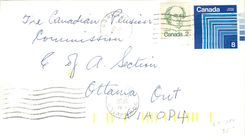 The Canadian Pension
Commission
E of A. Section
Ottawa Ont
K1A0P4
Canada 2
Canada
8